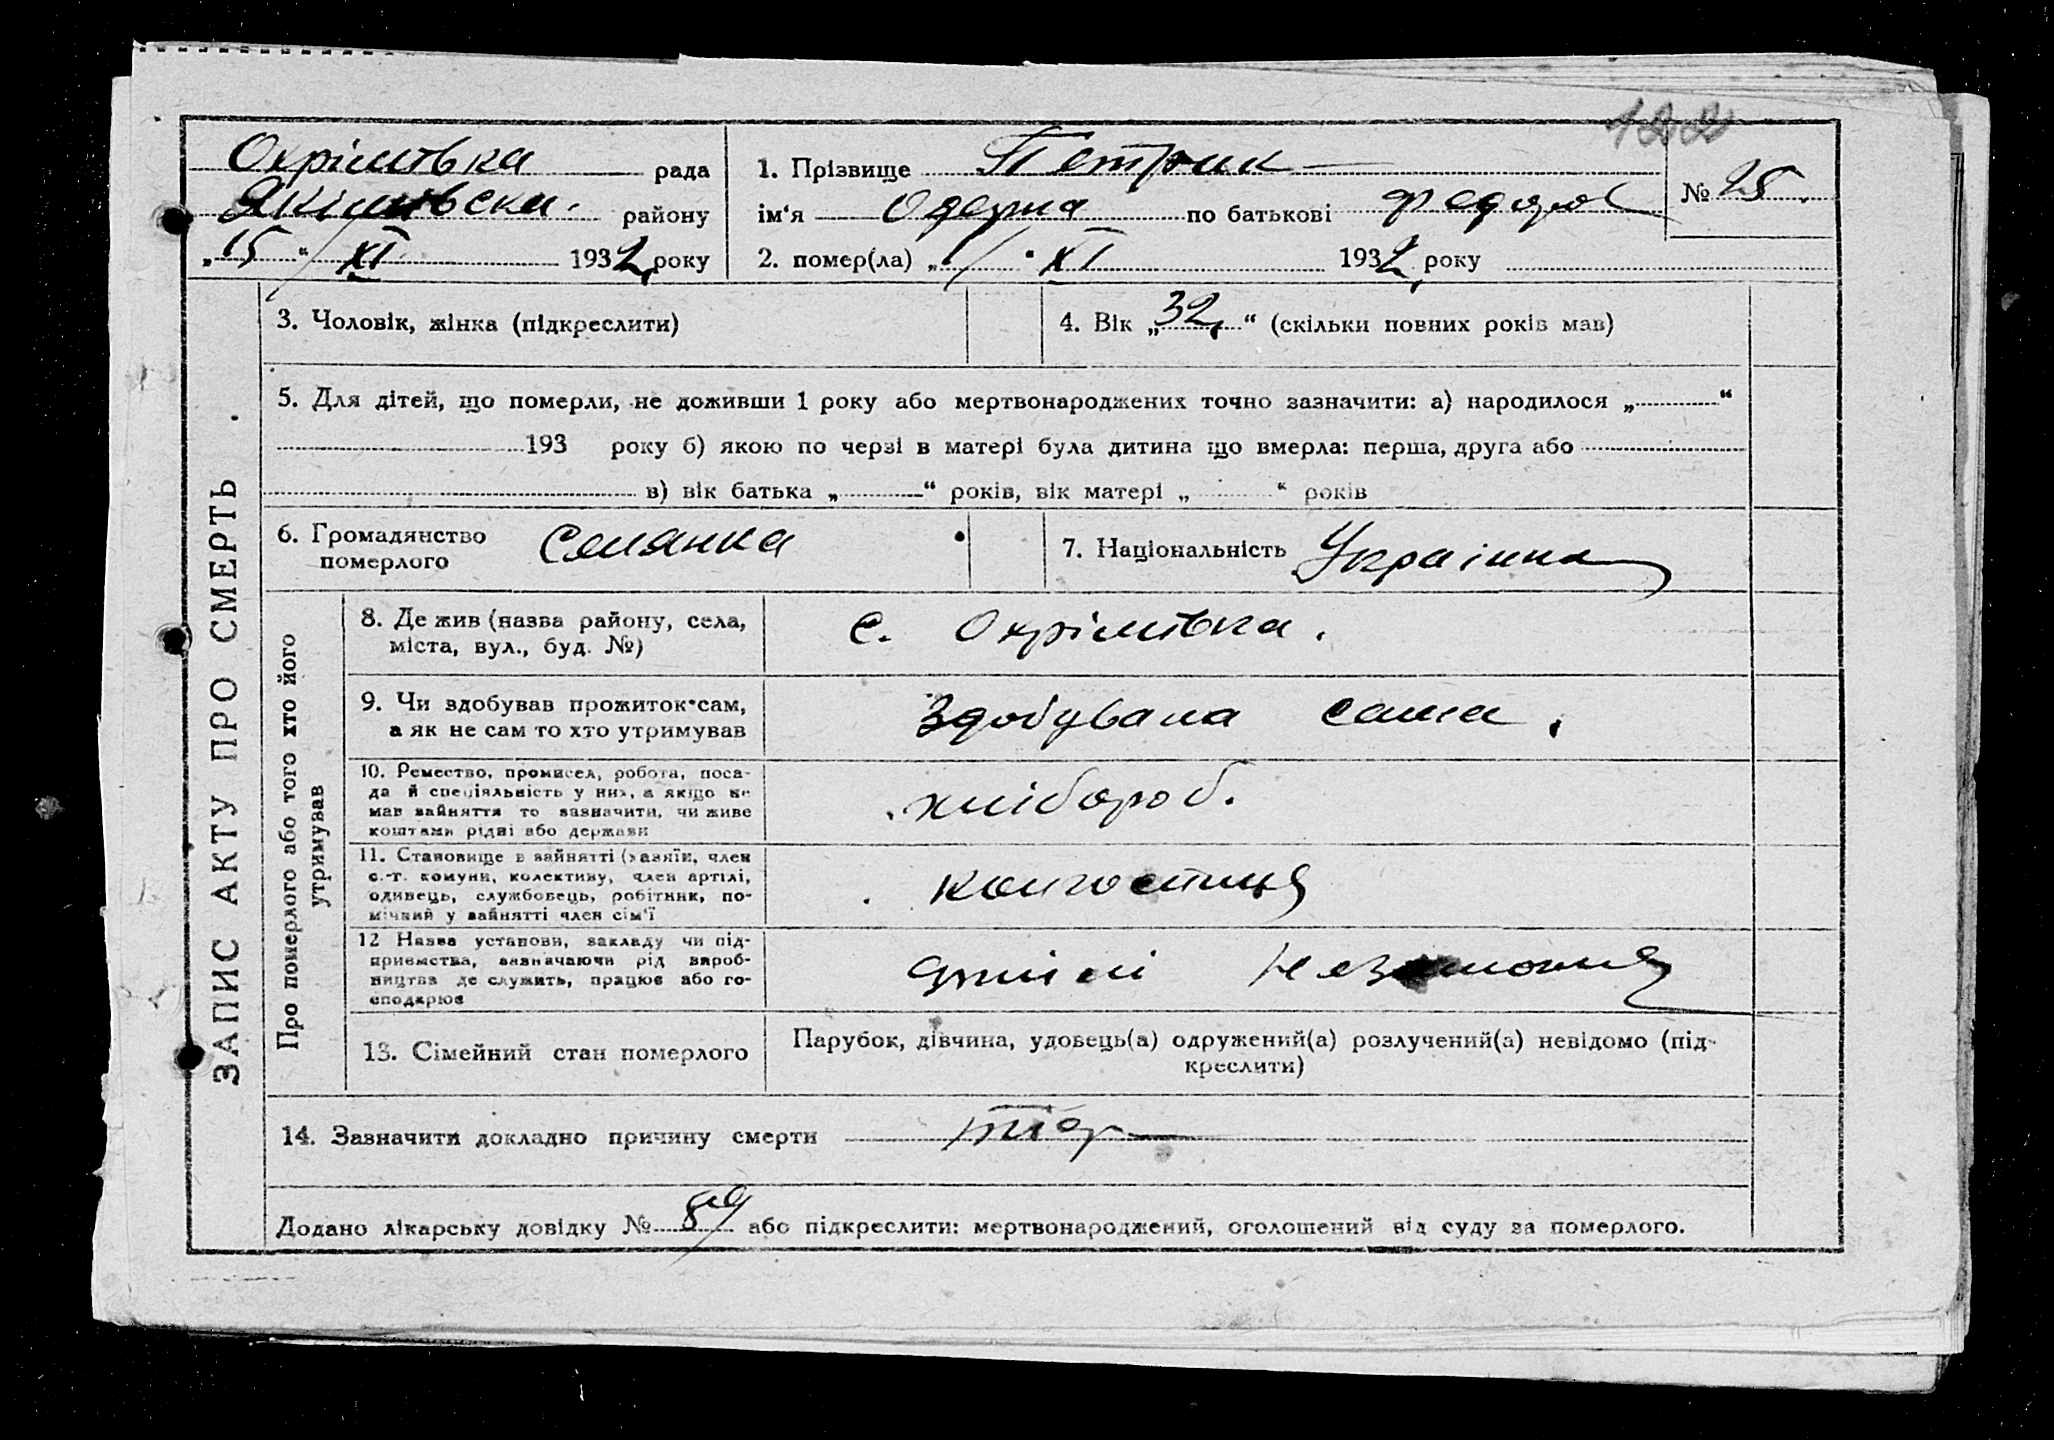 122
Охрімівка рада
Якімівськи. району
„15“ XI 1932 року
1. Прізвище Петрик
ім'я Одерка по батькові Федоров
2. помер(ла) „1“ XI 1932 року
№ 25
ЗАПИС АКТУ ПРО СМЕРТЬ
3. Чоловік, жінка (підкреслити)
4. Вік „32“ (скільки повних років мав)
5. Для дітей, що померли, не доживши 1 року або мертвонароджених точно зазначити: а) народилося „ “
193 року б) якою по черзі в матері була дитина що вмерла: перша, друга або
в) вік батька „ “ років, вік матері „ “ років
6. Громадянство
померлого
Селянка
7. Національність Українка
Про померлого або того хто його
утримував
8. Де жив (назва району, села,
міста, вул., буд. №)
с. Охрімівка.
9. Чи здобував прожиток сам,
а як не сам то хто утримував
Здобувала сама.
10. Ремество, промисел, робота, поса-
да й спеціяльність у них, а якщо не
мав зайняття то зазначити, чи живе
коштами рідні або держави
хлібороб.
11. Становище в зайнятті (хазяїн, член
с.-г. комуни, колективу, член артілі,
одинець, службовець, робітник, по-
мічний у зайнятті член сім'ї
колгоспниця
12 Назва установи, закладу чи під-
приємства, зазначаючи рід вироб-
ництва де служить, працює або го-
сподарює
Артілі Незаможня
13. Сімейний стан померлого
Парубок, дівчина, удовець(а) одружений(а) розлучений(а) невідомо (під-
креслити)
14. Зазначити докладно причину смерти
Додано лікарську довідку № 89 або підкреслити: мертвонароджений, оголошений від суду за померлого.